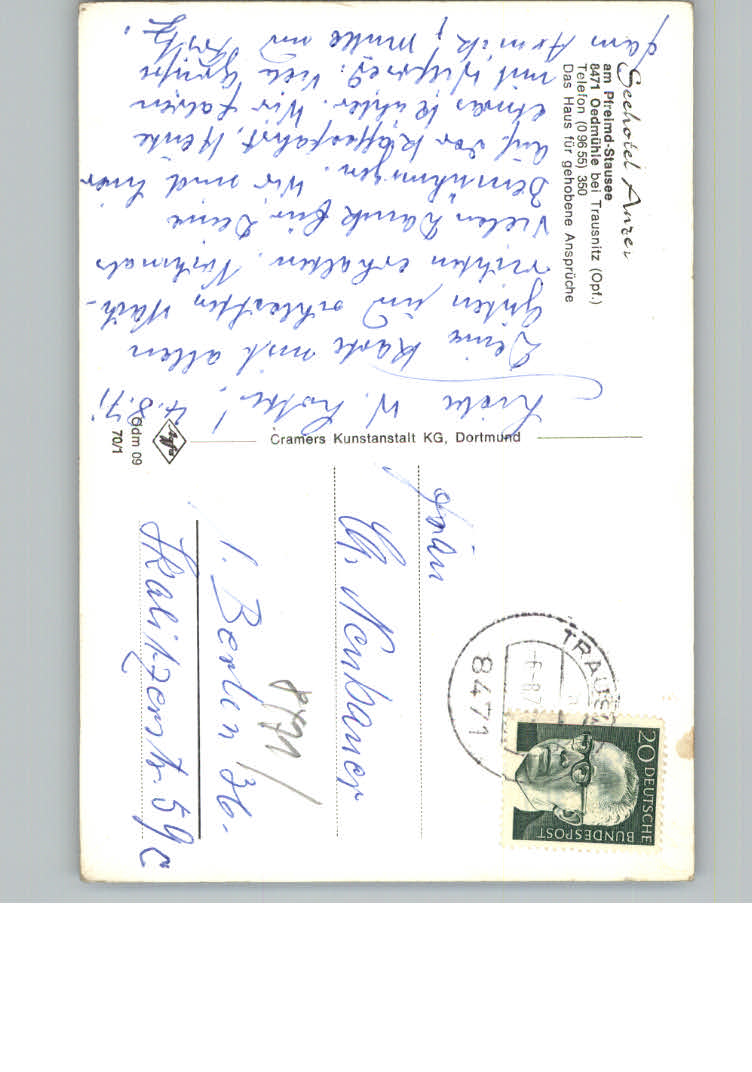 Seehotel Anzer
am Pfreimd-Stausee
8471 Oedmühle bei Trausnitz (Opf.)
Telefon (0 96 55) 350
Das Haus für gehobene Ansprüche
4.8.71
Liebe W.
Deine Karte mit allen
guten und schlechten Nach-
richten erhalten. Nochmals
vielen Dank für Deine
Bemühungen. Wir sind hier
auf der Kaffeefahrt. Heute
etwas kühler. Wir fahren
mit Viele Grüße
und
Cramers Kunstanstalt KG, Dortmund
Agfa
Gdm 09
70/1
20 DEUTSCHE
BUNDESPOST
TRAUS
8471
-6.-8.7
Frau
Neubauer
1. Berlin 36.
Skalitzerstr. 59c
8471